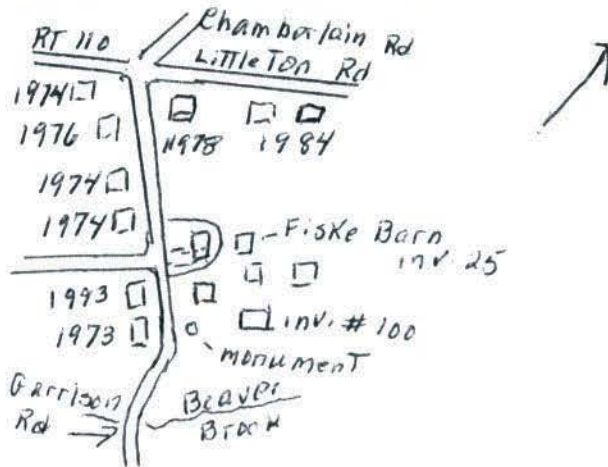 Chamberlain Rd
RT 110
LittleTon Rd
1974
1976
1978
1984
1974
1974
Fiske Barn
inv. 25
1993
1973
inv. # 100
monument
Garrison
Rd
Beaver
Brook